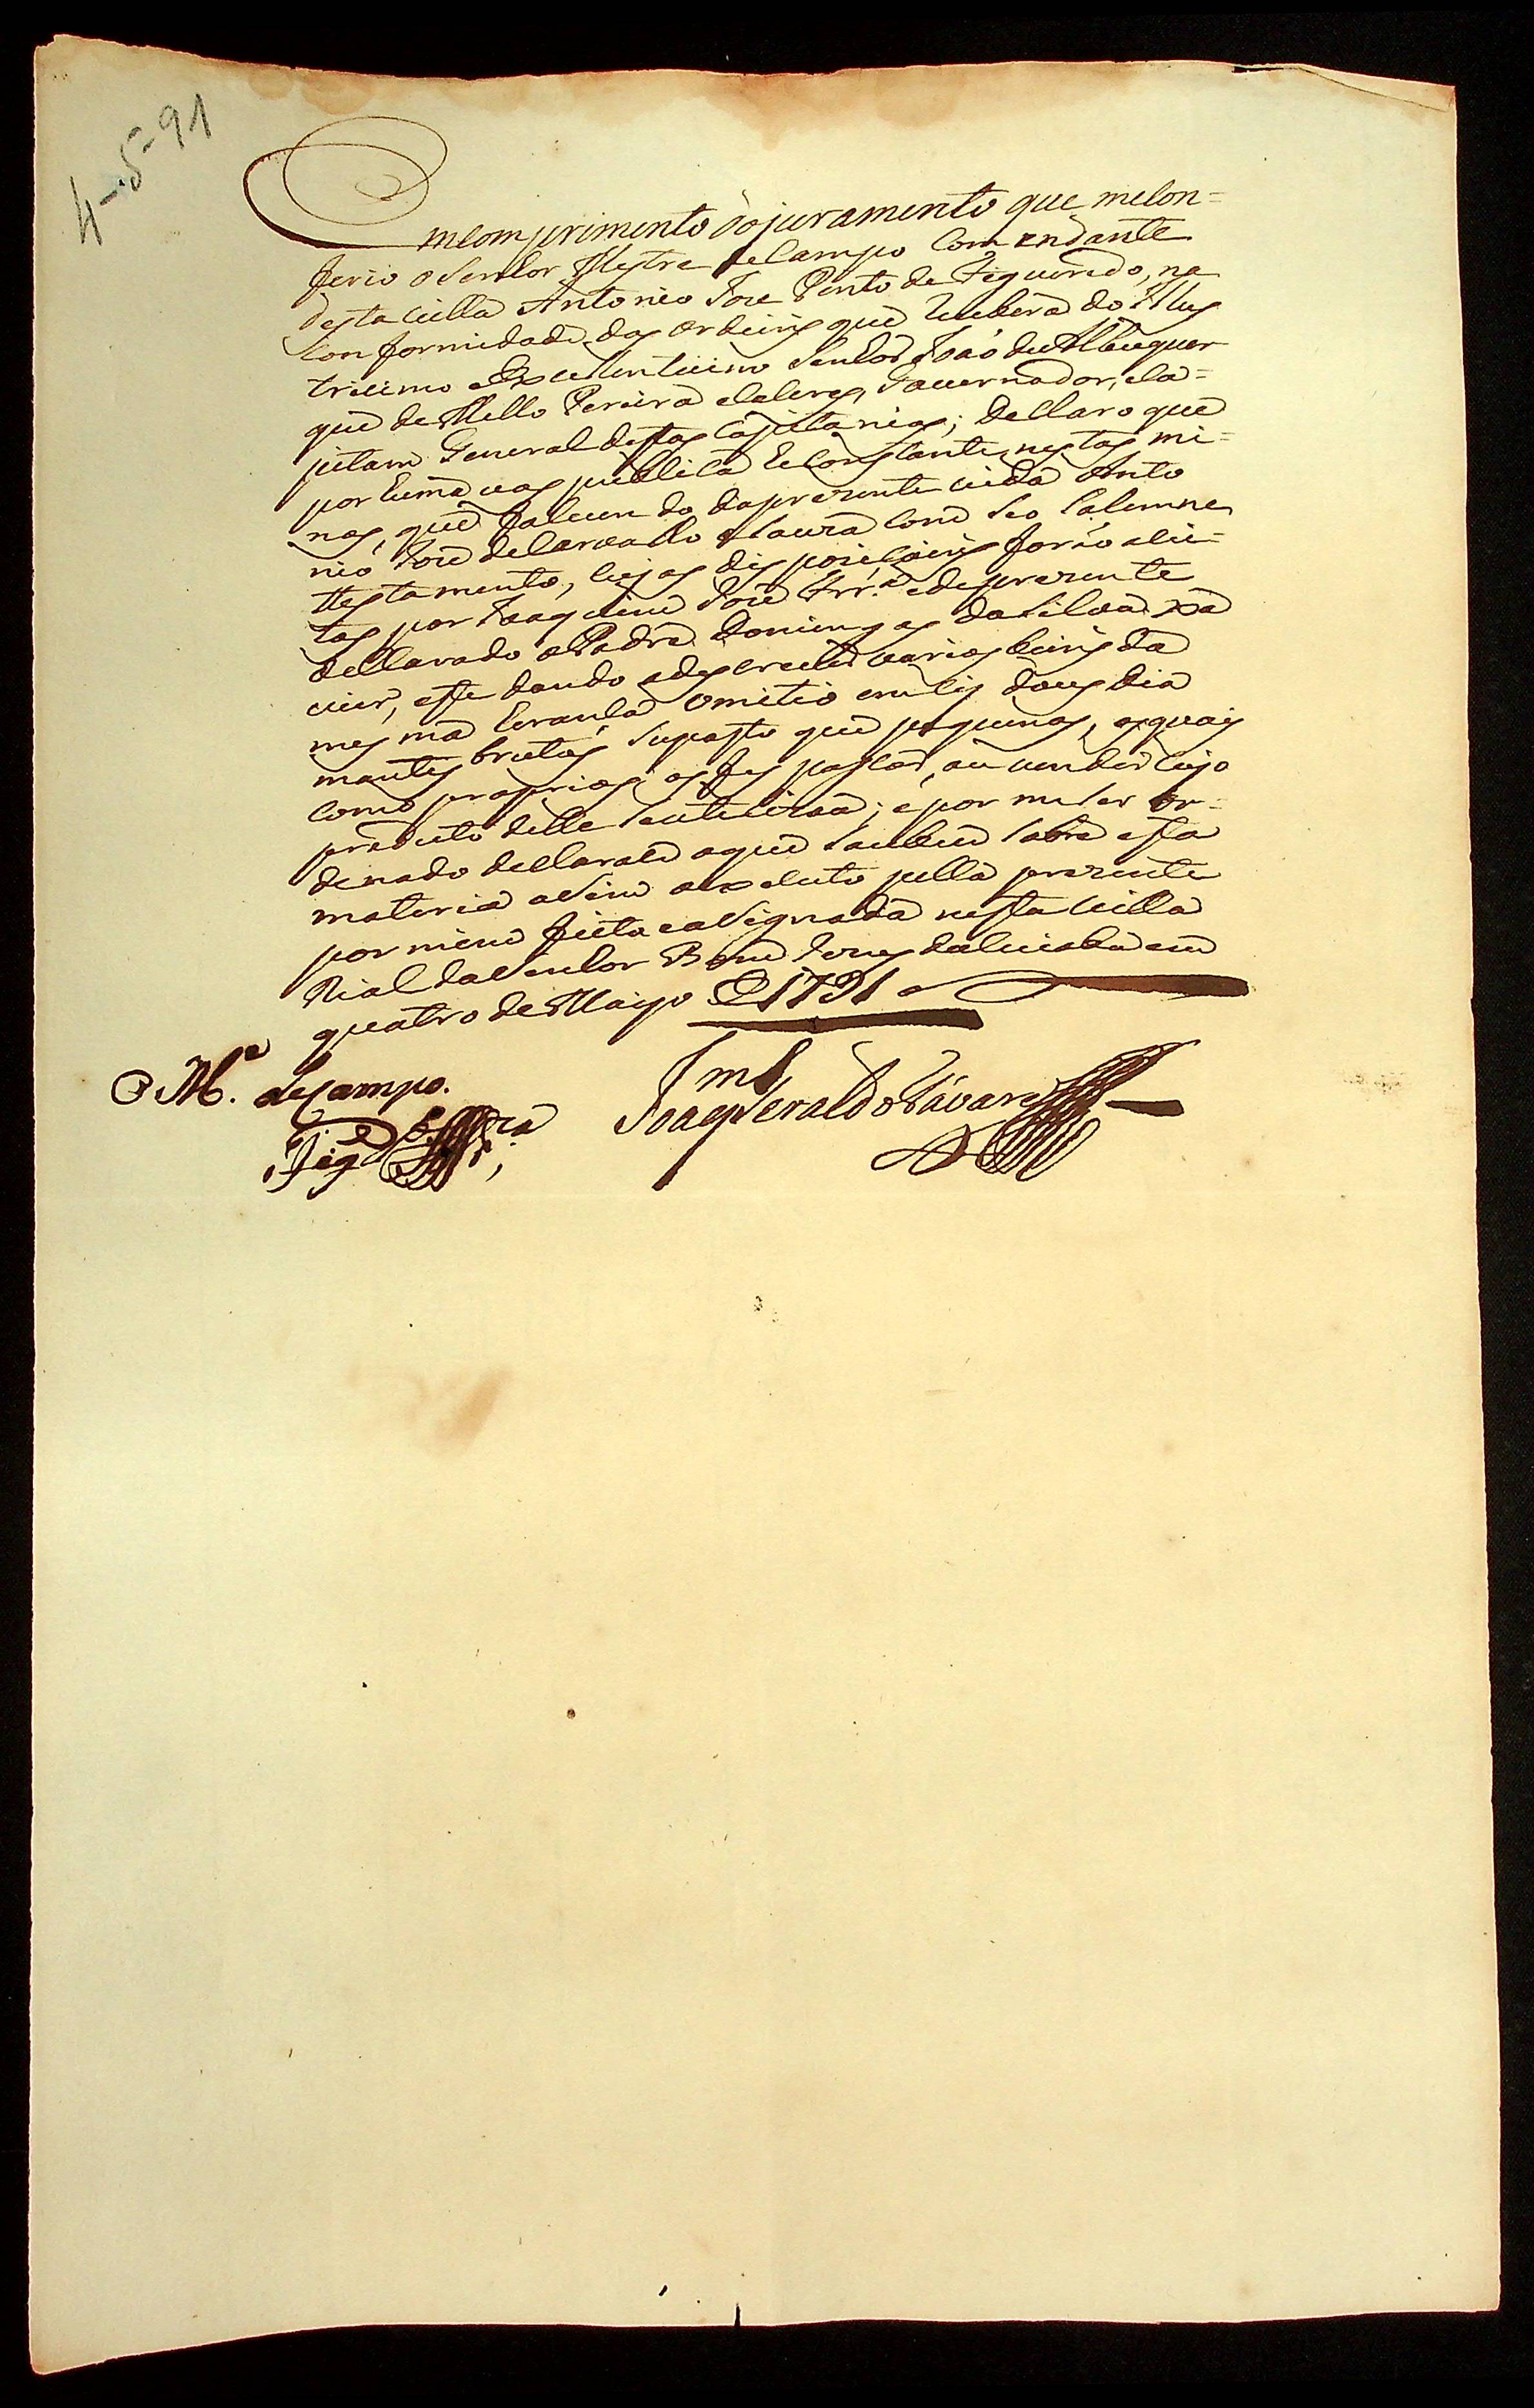 4-5-91
Em comprimento do juramento que me con=
ferio o Senhor Mestre de Campo Comendante
desta villa Antonio Joze Pinto de Figueiredo, na
conformidade das ordeins que recebera do Illus
tricimo e Excelentiçimo Senhor João de Albuquer
que de Mello Pereira e Caceres, Gauernador, e Ca=
pitam General destas Capitanias; Declaro que
por huma vos publica e constante nestas mi=
nas, que falecendo da prezente vida Anto
nio Joze de Carvalho com seo Solemne
testamento, cujas dispoziçoins forão aCei=
tas por Joaquim Joze Frr.ª e de prezente
declarado o Padre Domingos da Silva Xa
vier, este dando a descreuer varios beins da
mesma herança omitio em si dous dia
mantes brutos suposto que pequenos, os quais
como proprios os fes passar, ou vender cujo
produto delle se utelizaa; e por me ser or=
denado declarace o que soubece sobre esta
materia aSim o executo pella prezente
por mim feita e aSignada nesta Villa
Rial do Senhor Bom Jezus do Cuiabá em
quatro de Mayo D 1791
O M.e de Campo.
Fig.do
Joaq Geraldo Tavares